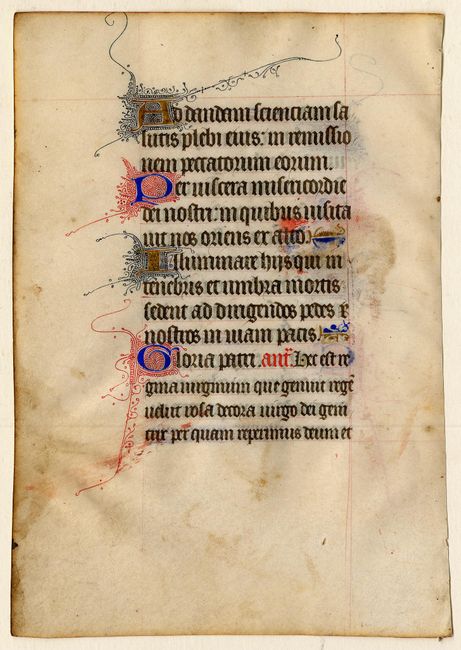 Ad dandam scienciam sa
lutis plebi eius: in remissio
nem peccatorum eorum
Per viscera misericordie
dei nostri: in quibus visita
uit nos oriens ex alto.
Illuminare hijs qui in
tenebris et umbra mortis
sedent ad dirigendos pedes
nostros in viam pacis.
Gloria patri. añ. Hec est re
gina virginum que genuit regē
velut rosa decora virgo dei geni
trix per quam reperimus deum et